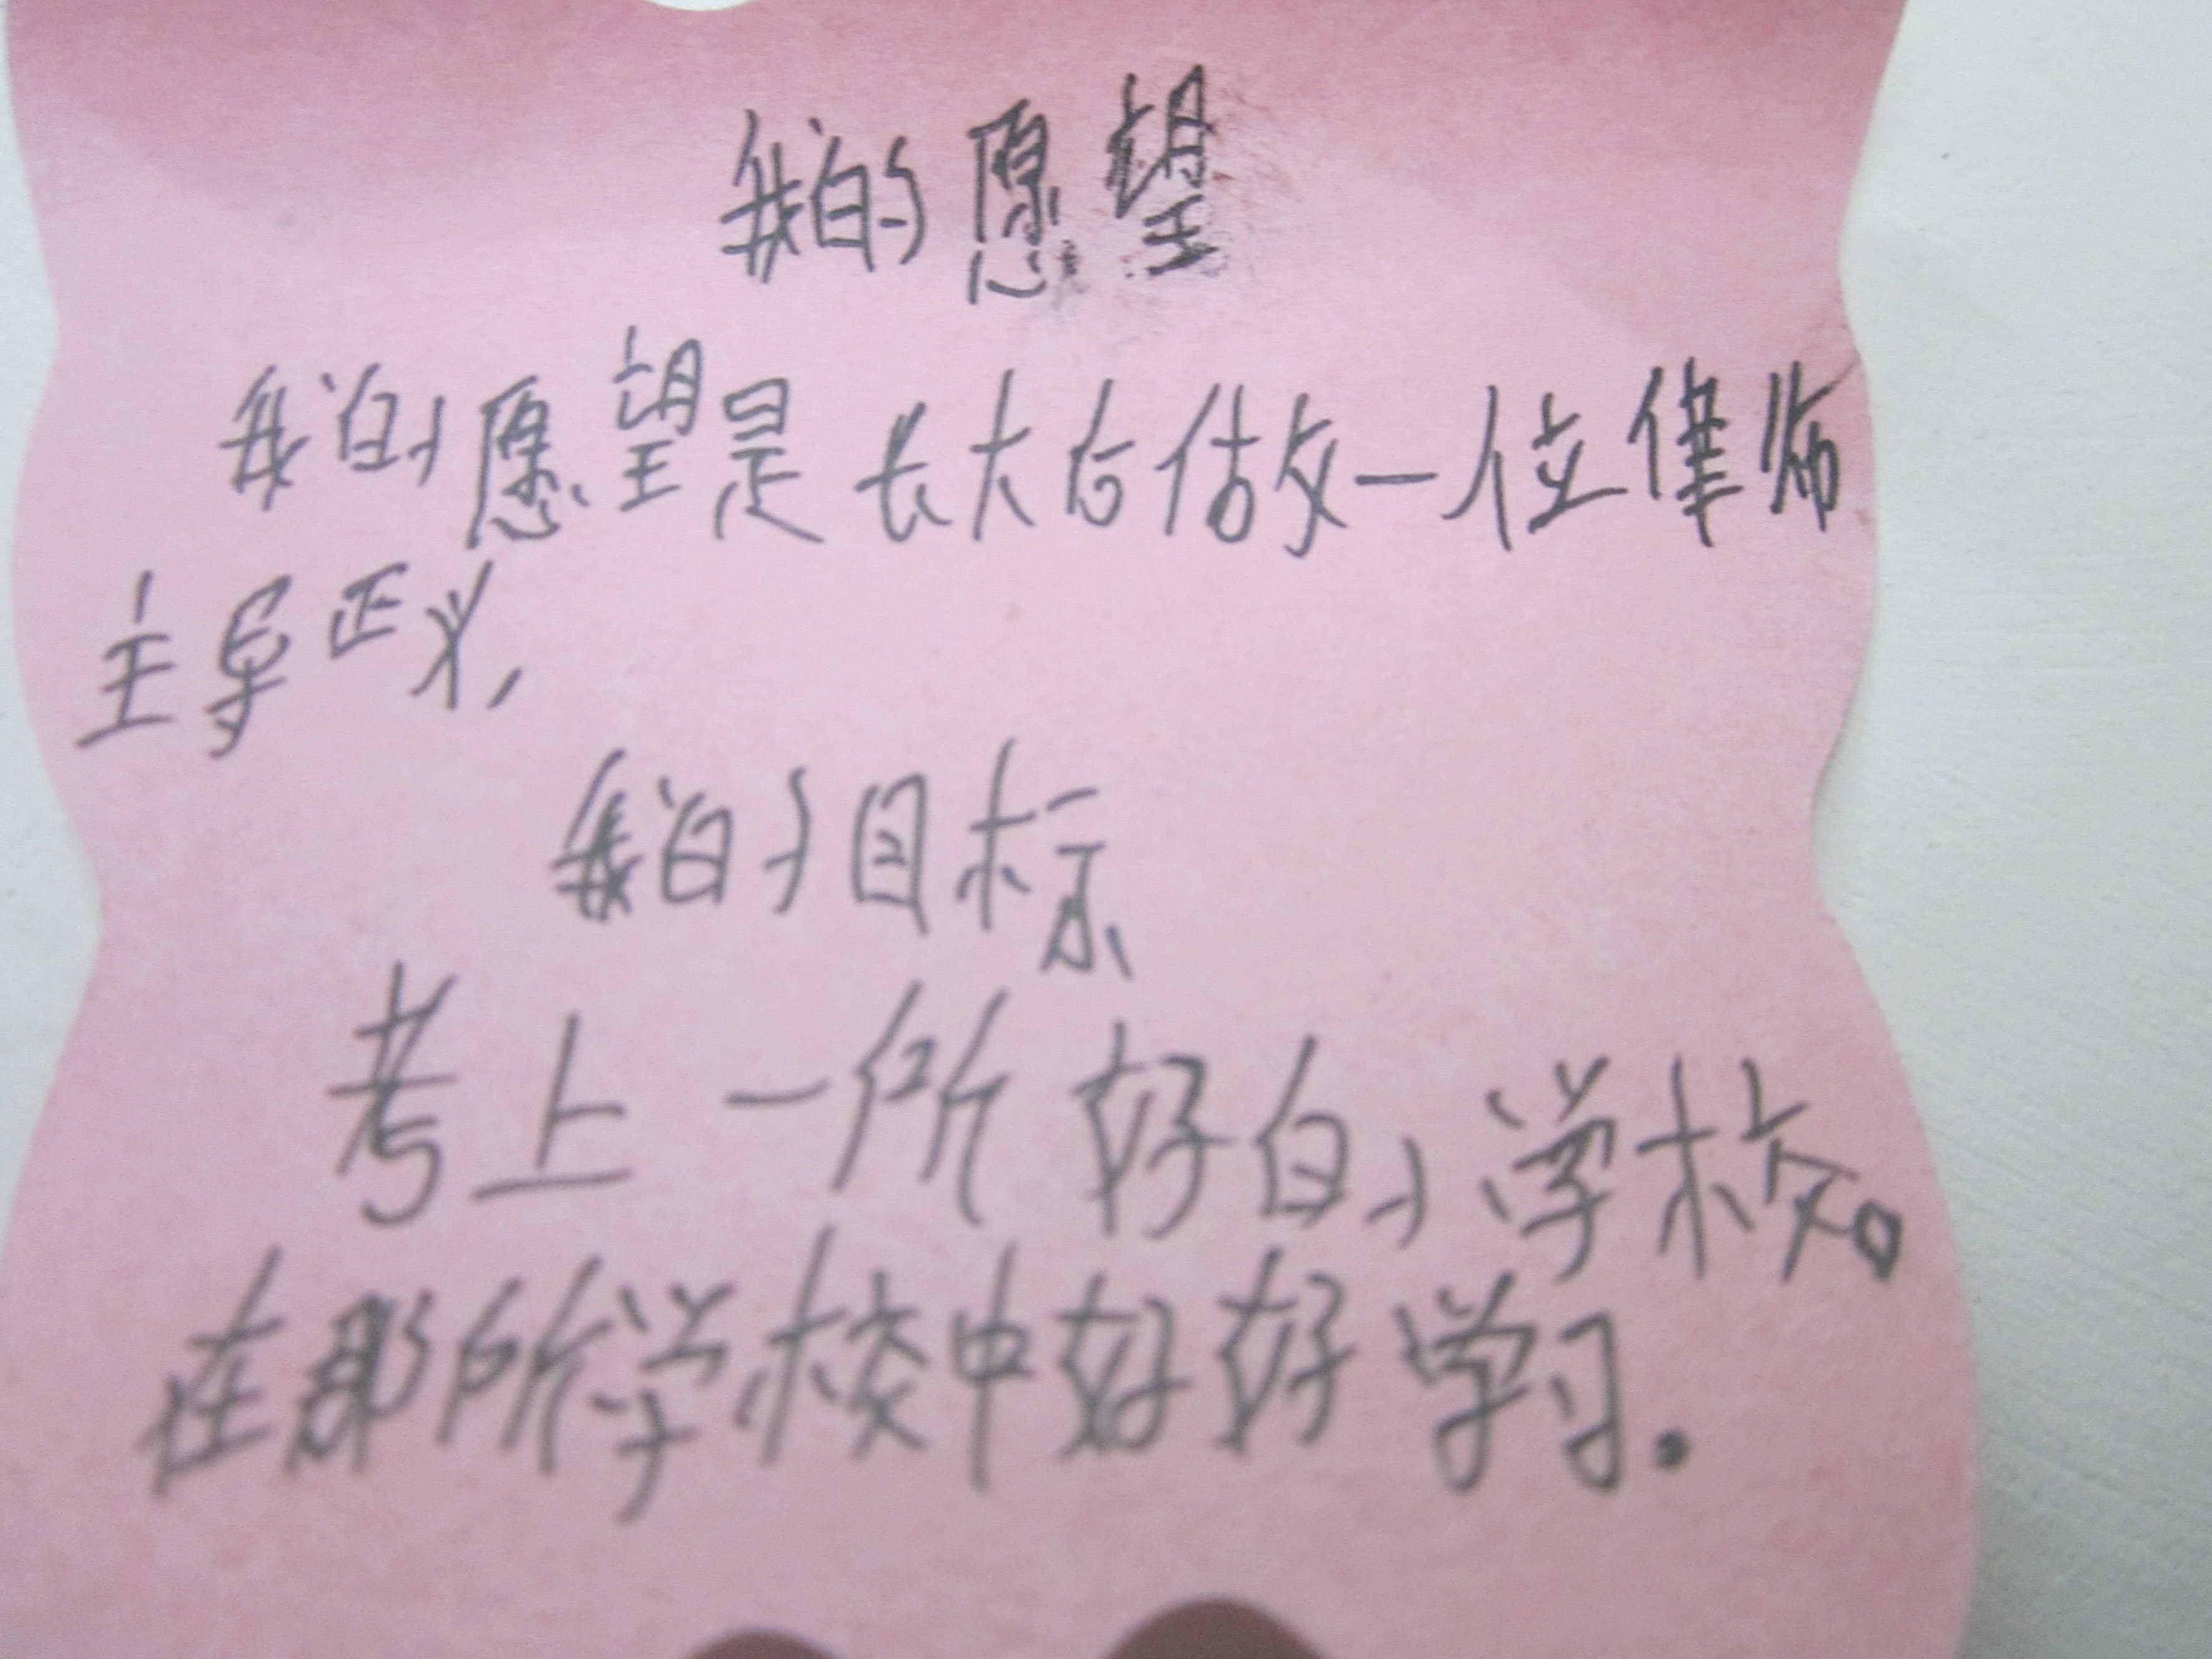 我的愿望
我的愿望是长大后做一位律师
主导正义，
我的目标
考上一所好的学校。
在那所学校中好好学习.